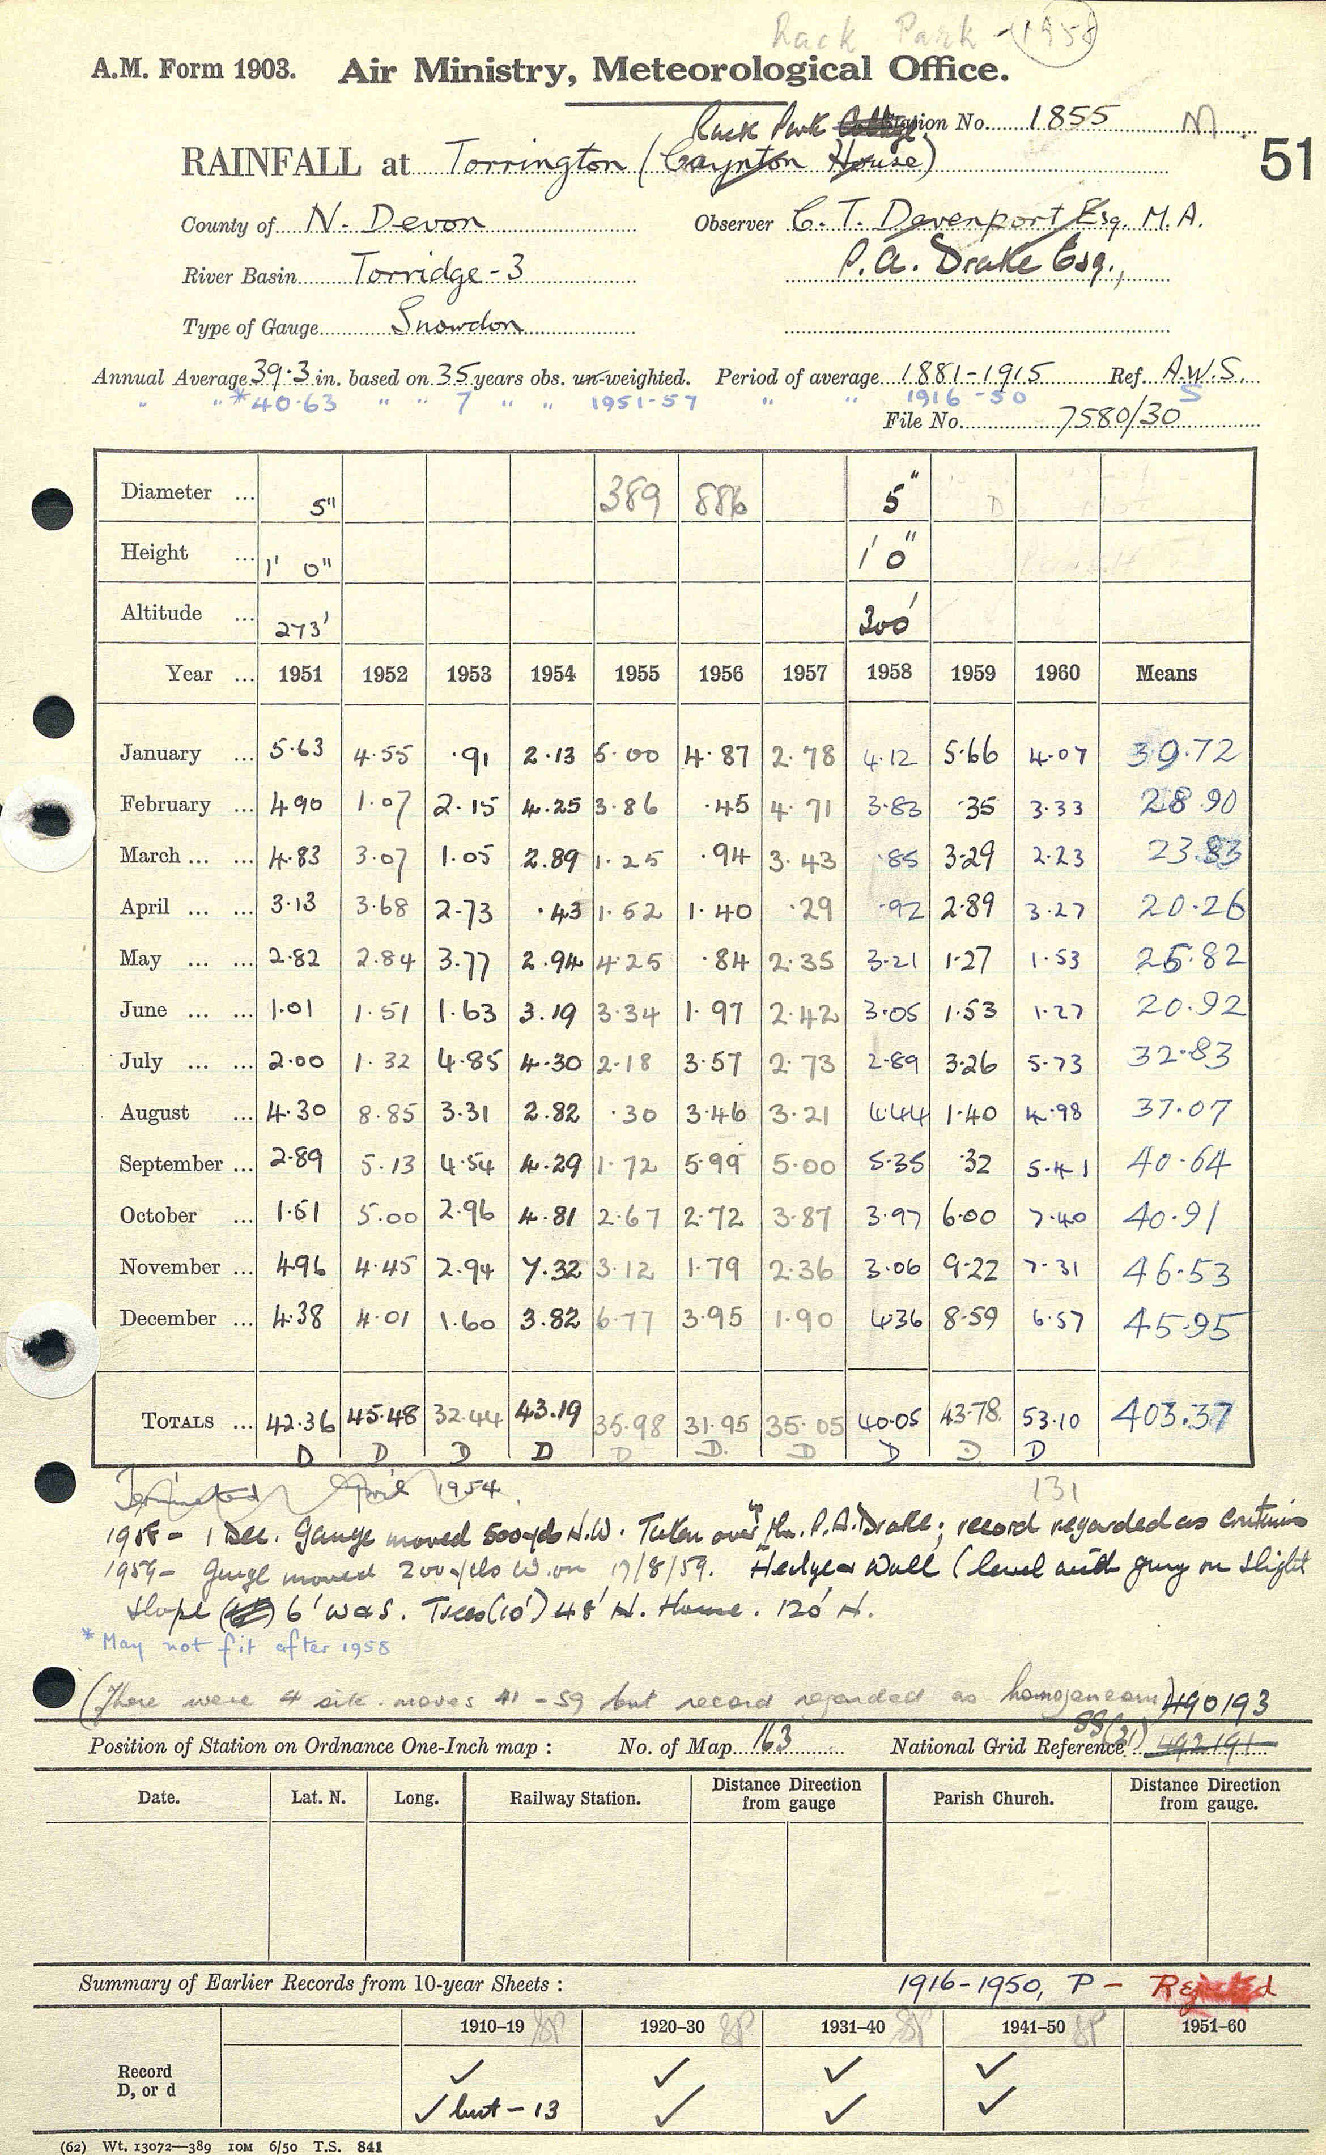 Rack Park - 1958
A.M. Form 1903. Air Ministry, Meteorological Office.
Rack Park Station No. 1855 M
RAINFALL at Torrington (Caynton House) 51
County of N. Devon Observer C. T. Devenport Esq. M.A.
P.A. Drake Esq.,
River Basin Torridge-3
Type of Gauge Snowdon
Annual Average 39.3 in. based on 35 years obs. un-weighted. Period of average 1881-1915 Ref. A.W.S.
" " *40.63 " " 7 " " 1951-57 " " 1916-50 S
File No. 7580/30
Diameter ... 5" 389 886 5" D
Height ... 1' 0" 1' 0"
Altitude ... 273' 300'
Year ... 1951 1952 1953 1954 1955 1956 1957 1958 1959 1960 Means
January ... 5.63 4.55 .91 2.13 5.00 4.87 2.78 4.12 5.66 4.07 39.72
February ... 4.90 1.07 2.15 4.25 3.86 .45 4.71 3.83 .35 3.33 28.90
March ... ... 4.83 3.07 1.05 2.89 1.25 .94 3.43 .85 3.29 2.23 23.83
April ... ... 3.13 3.68 2.73 .43 1.52 1.40 .29 .92 2.89 3.27 20.26
May ... ... 2.82 2.84 3.77 2.94 4.25 .84 2.35 3.21 1.27 1.53 25.82
June ... ... 1.01 1.51 1.63 3.19 3.34 1.97 2.42 3.05 1.53 1.27 20.92
July ... ... 2.00 1.32 4.85 4.30 2.18 3.57 2.73 2.89 3.26 5.73 32.83
August ... 4.30 8.85 3.31 2.82 .30 3.46 3.21 4.44 1.40 4.98 37.07
September ... 2.89 5.13 4.54 4.29 1.72 5.99 5.00 5.35 .32 5.41 40.64
October ... 1.51 5.00 2.96 4.81 2.67 2.72 3.87 3.97 6.00 7.40 40.91
November ... 4.96 4.45 2.94 7.32 3.12 1.79 2.36 3.06 9.22 7.31 46.53
December ... 4.38 4.01 1.60 3.82 6.77 3.95 1.90 4.36 8.59 6.57 45.95
TOTALS ... 42.36 45.48 32.44 43.19 35.98 31.95 35.05 40.05 43.78 53.10 403.37
D D D D D D. D D D D
Terminated April 1954. 131
1958 - 1 Dec. Gauge moved 500 yds N.W. Taken over by Mr. P.A. Drake; record regarded as continuous
1959 - Gauge moved 200 yds W. on 17/8/59. Hedge or Wall (level with gauge on slight
slope 6' W & S. Trees (10') 48' N. Home. 120' N.
* May not fit after 1958
(There were 4 site moves 41-59 but record regarded as homogeneous) 490193
SS(21)
Position of Station on Ordnance One-Inch map : No. of Map 163 National Grid Reference 492191
Date. Lat. N. Long. Railway Station. Distance Direction from gauge Parish Church. Distance Direction from gauge.
Summary of Earlier Records from 10-year Sheets : 1916-1950, P - Rejected
1910-19 SP 1920-30 SP 1931-40 SP 1941-50 SP 1951-60
Record ✓ ✓ ✓ ✓
D, or d ✓ but - 13 ✓ ✓ ✓
(62) Wt. 13072—389 10M 6/50 T.S. 841